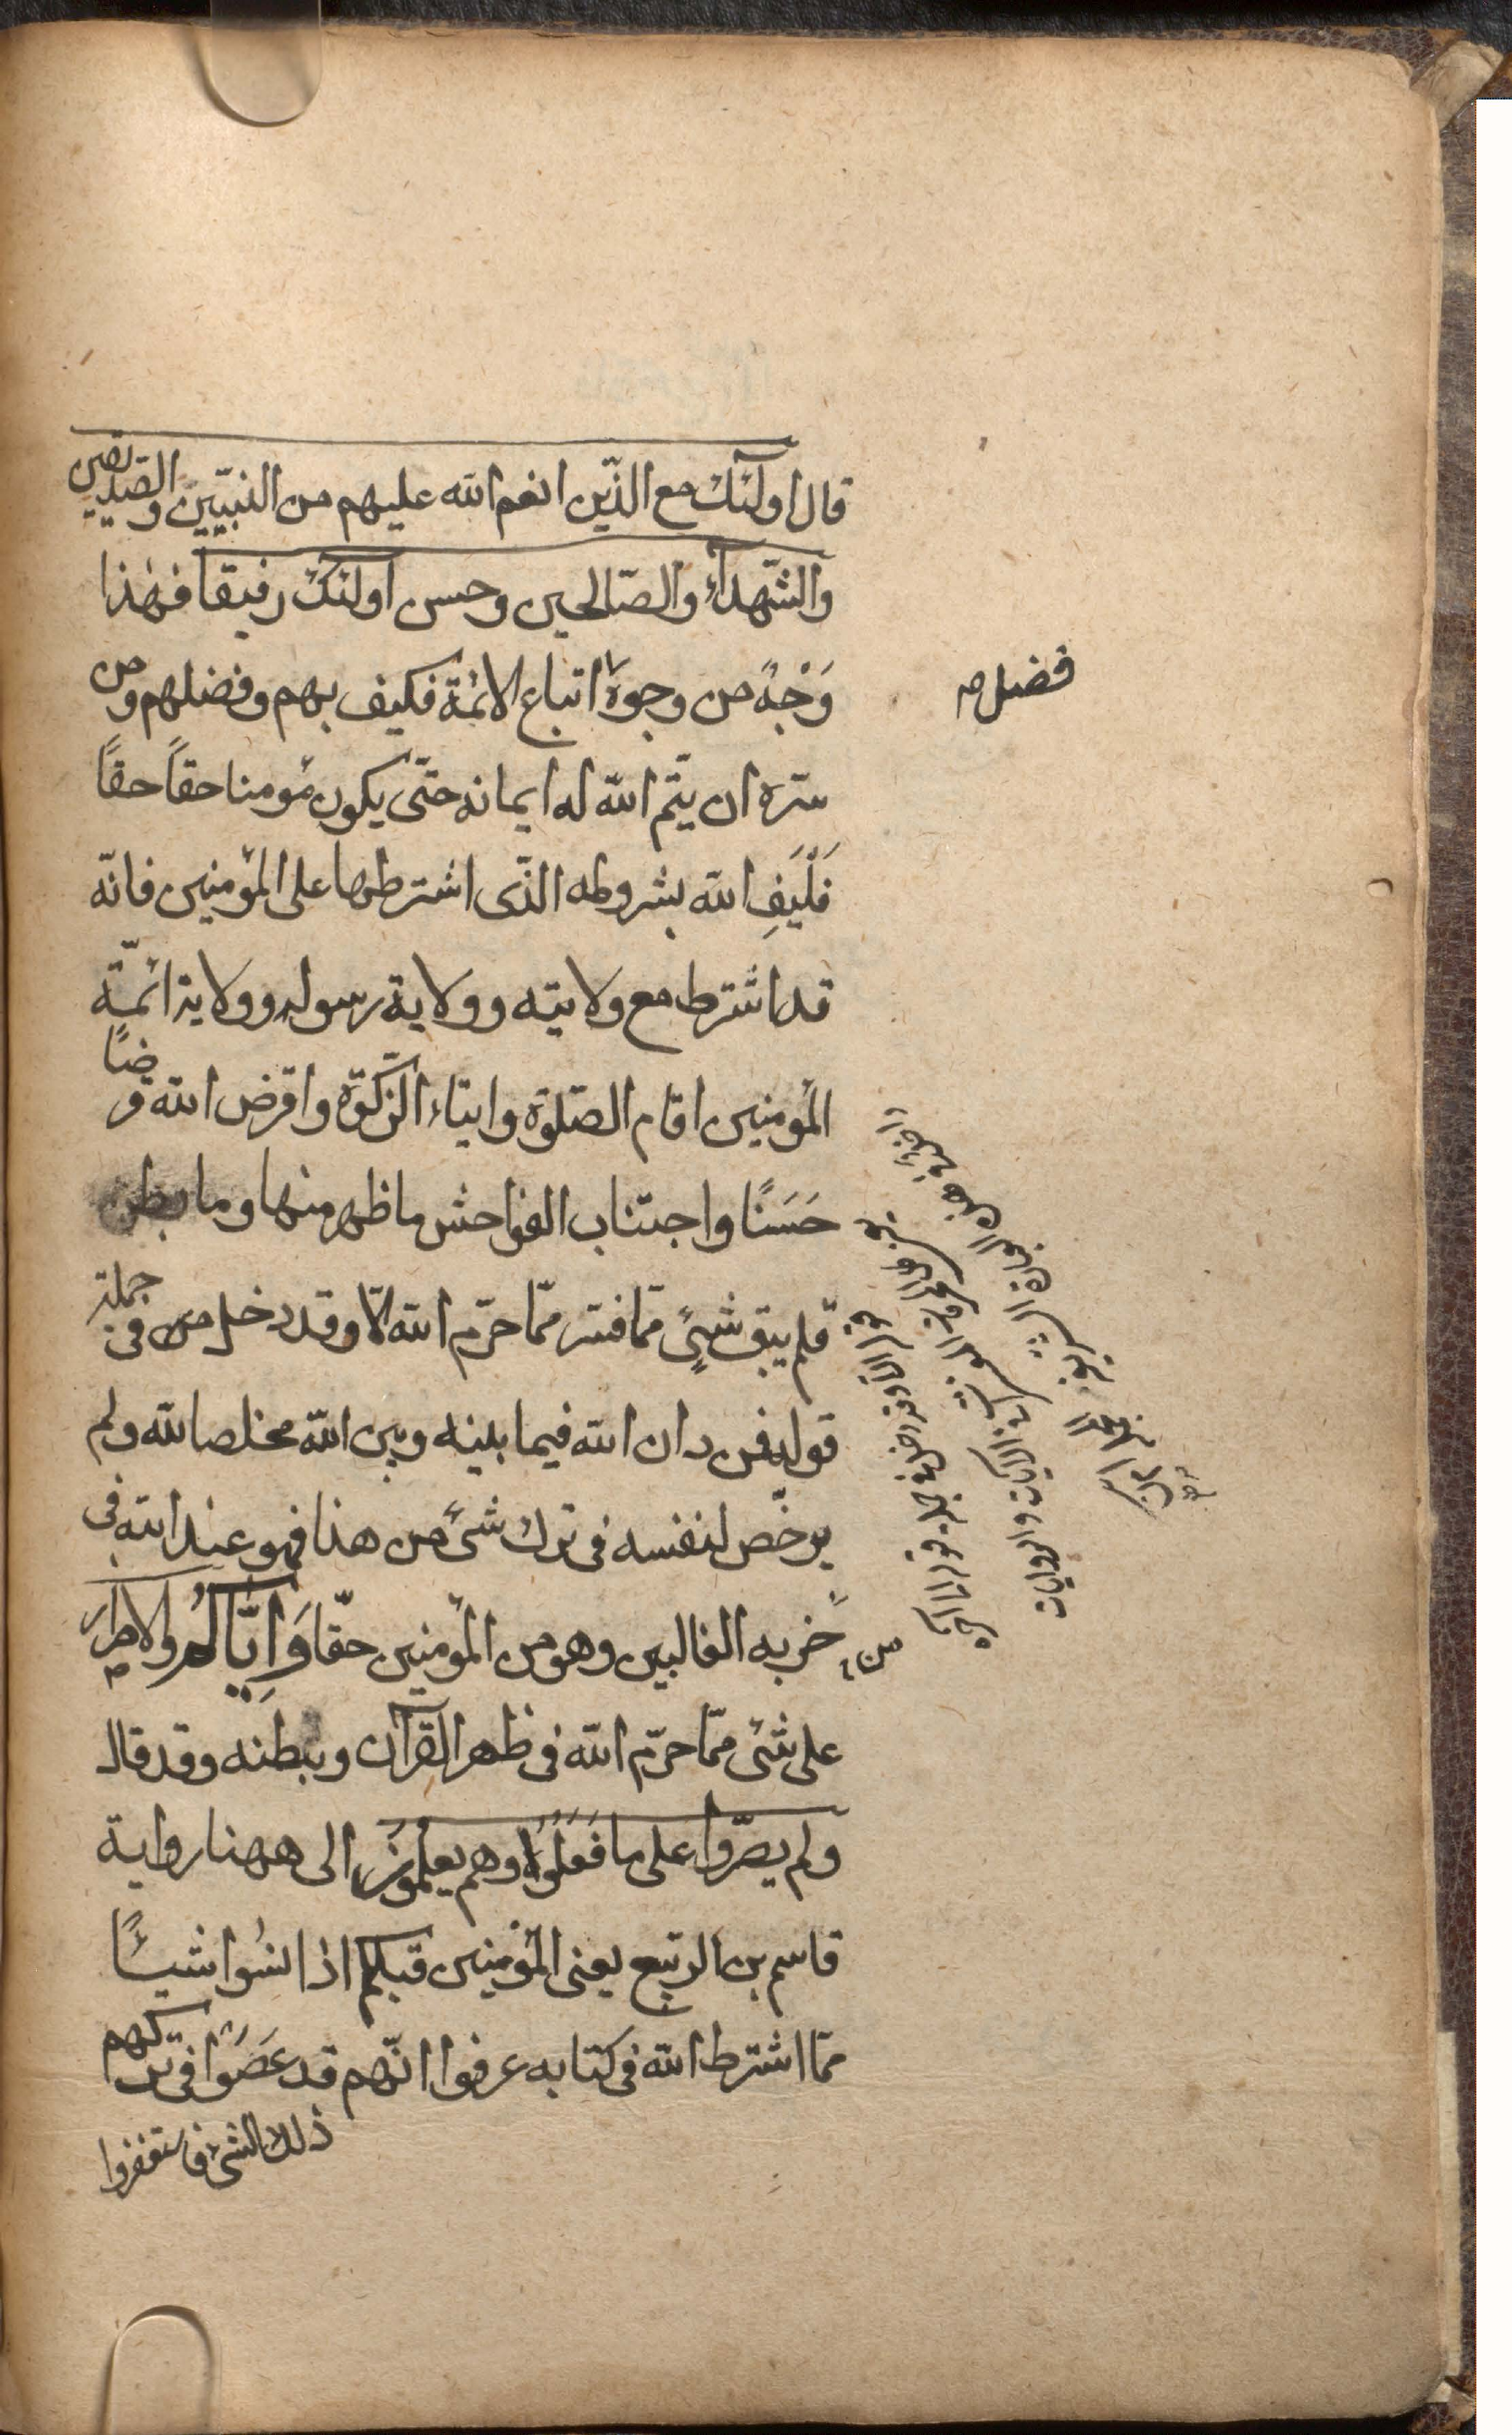 قال اولئك مع الذّين انعم الله عليهم من النبيّين والصّديقين
والشّهدآء والصّالحين وحسن اولئك رفيقا فهٰذا
وَجْهٌ من وجوه اتباع الائمّة فكيف بهم وفضلهم ومن
فضل
سرّه ان يتّم الله له ايمانه حتّى يكون مؤمنا حقاً حقاً
فَلْيَفِ الله بشروطه الذّى اشترطها على المؤمنين فانّه
قد اشترط مع ولايته وولاية رسوله وولاية ائمّة
المؤمنين اقام الصّلوة وايتاء الزّكوة واقرض الله قرضًا
حَسَنًا واجتناب الفواحش ما ظهر منها وما بطن
فلم يبق شئٌ ممّا فسّر ممّا حرّم الله الّا وقد دخل من فى جملة
قوله فمن دان الله فيما بينه وبين الله مخلصا لله ولم
يرخّص لنفسه فى ترك شئ من هذا فهو عند الله فى
حزبه الغالبين وهو من المؤمنين حقّا وَاِيّاكُم والاصرار
من
على شئ ممّا حرّم الله فى ظهر القرآن وبطنه وقد قال
ولم يصرّوا على ما فَعَلُوْا وهم يعلمون الى ههنا رواية
قاسم بن الرّبيع يعنى المؤمنين قبلكم اذا نسُوا شيئًا
ممّا اشترط الله فى كتابه عرفوا انّهم قد عَصَوْا فى تركهم
ذلك الشئ فاستغفروا